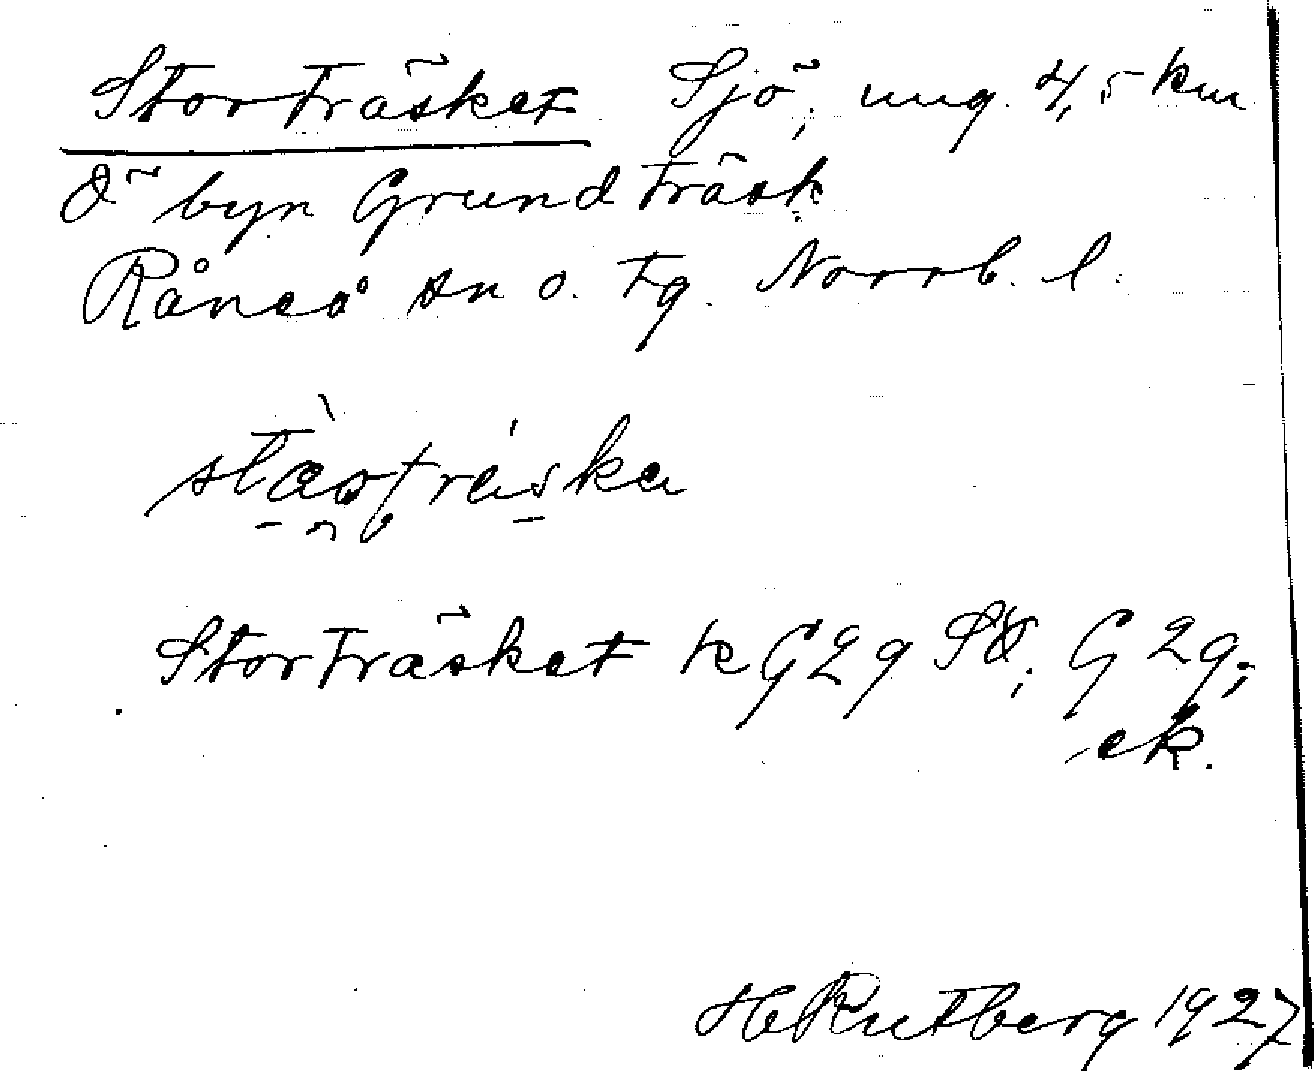 Storträsket Sjö, ung. 4,5 km
Ö byn Grundträsk
Råneå sn o. tg. Norrb. l.
Storträsket k G2g SÖ; G 2g;
ek.
H Rutberg 1927